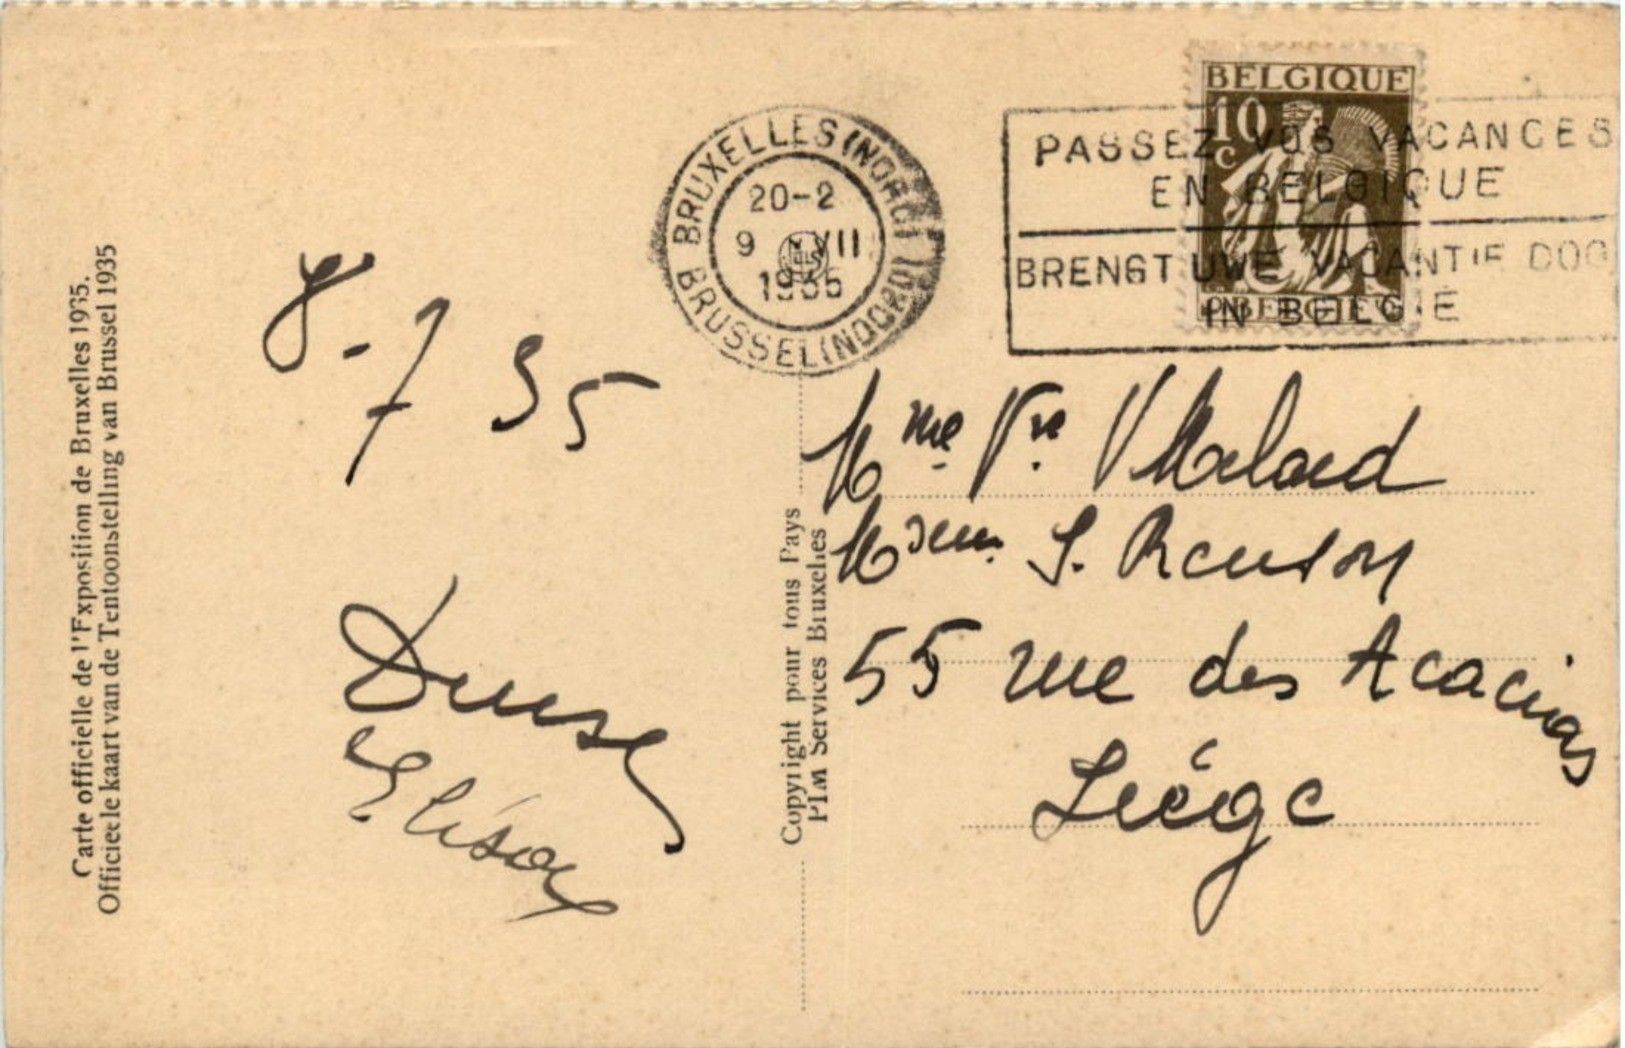 Carte officielle de l'Exposition de Bruxelles 1935.
Officieele kaart van de Tentoonstelling van Brussel 1935
8-7 35
Elison
Copyright pour tous Pays
PIM Services Bruxelles
BRUXELLES (NORD)
20-2
9 VII
1935
BRUSSEL (NOORD)
BELGIQUE
10
C
BELGIË
PASSEZ VOS VACANCES
EN BELGIQUE
BRENGT UWE VACANTIE DOO
IN BELGIE
Mme Vve V Malard
Mesem. S. Renson
55 rue des Acacias
Liége